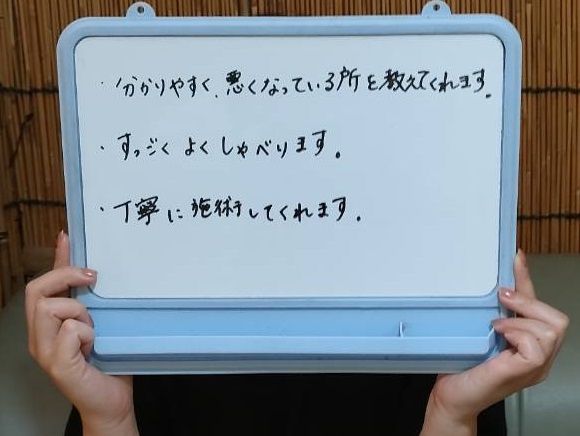 ・分かりやすく、悪くなっている所を教えてくれます。
・すっごくよくしゃべります。
・丁寧に施術してくれます。